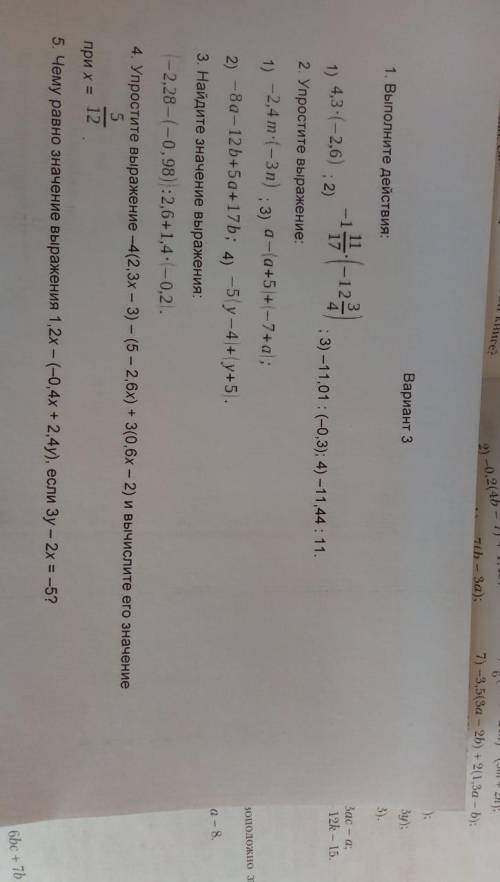 Вариант 3
1. Выполните действия:
1) 4,3·(−2,6) ; 2) −1 11/17·(−12 3/4) ; 3) −11,01 : (−0,3); 4) −11,44 : 11.
2. Упростите выражение:
1) −2,4m·(−3n) ; 3) a−(a+5)+(−7+a);
2) −8a−12b+5a+17b; 4) −5(y−4)+(y+5).
3. Найдите значение выражения:
(−2,28−(−0,98)):2,6+1,4·(−0,2).
4. Упростите выражение −4(2,3x – 3) – (5 – 2,6x) + 3(0,6x – 2) и вычислите его значение
при x = 5/12 .
5. Чему равно значение выражения 1,2x – (–0,4x + 2,4y), если 3y – 2x = –5?
книге?
2) −0,2(4b −
7(b − 3a);
7) −3,5(3a − 2b) + 2(1,3a − b);
);
3y);
3).
3ac − a;
12k − 15.
a − 8.
6bc + 7b